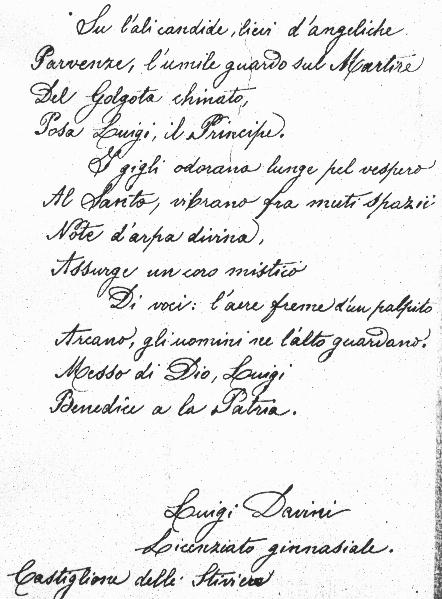 Su l'ali candide, lievi d'angeliche
Parvenze, l'umile guardo sul Martire
Del Golgota chinato,
Posa Luigi, il Principe.
I gigli odorano lunge pel vespero
Al Santo, vibrano fra muti spazii
Note d'arpa divina,
Assurge un coro mistico
Di voci: l'aere freme d'un palpito
Arcano, gli uomini ne l'alto guardano.
Messo di Dio, Luigi
Benedice a la Patria.
Luigi Davini
Licenziato ginnasiale.
Castiglione delle Stiviere